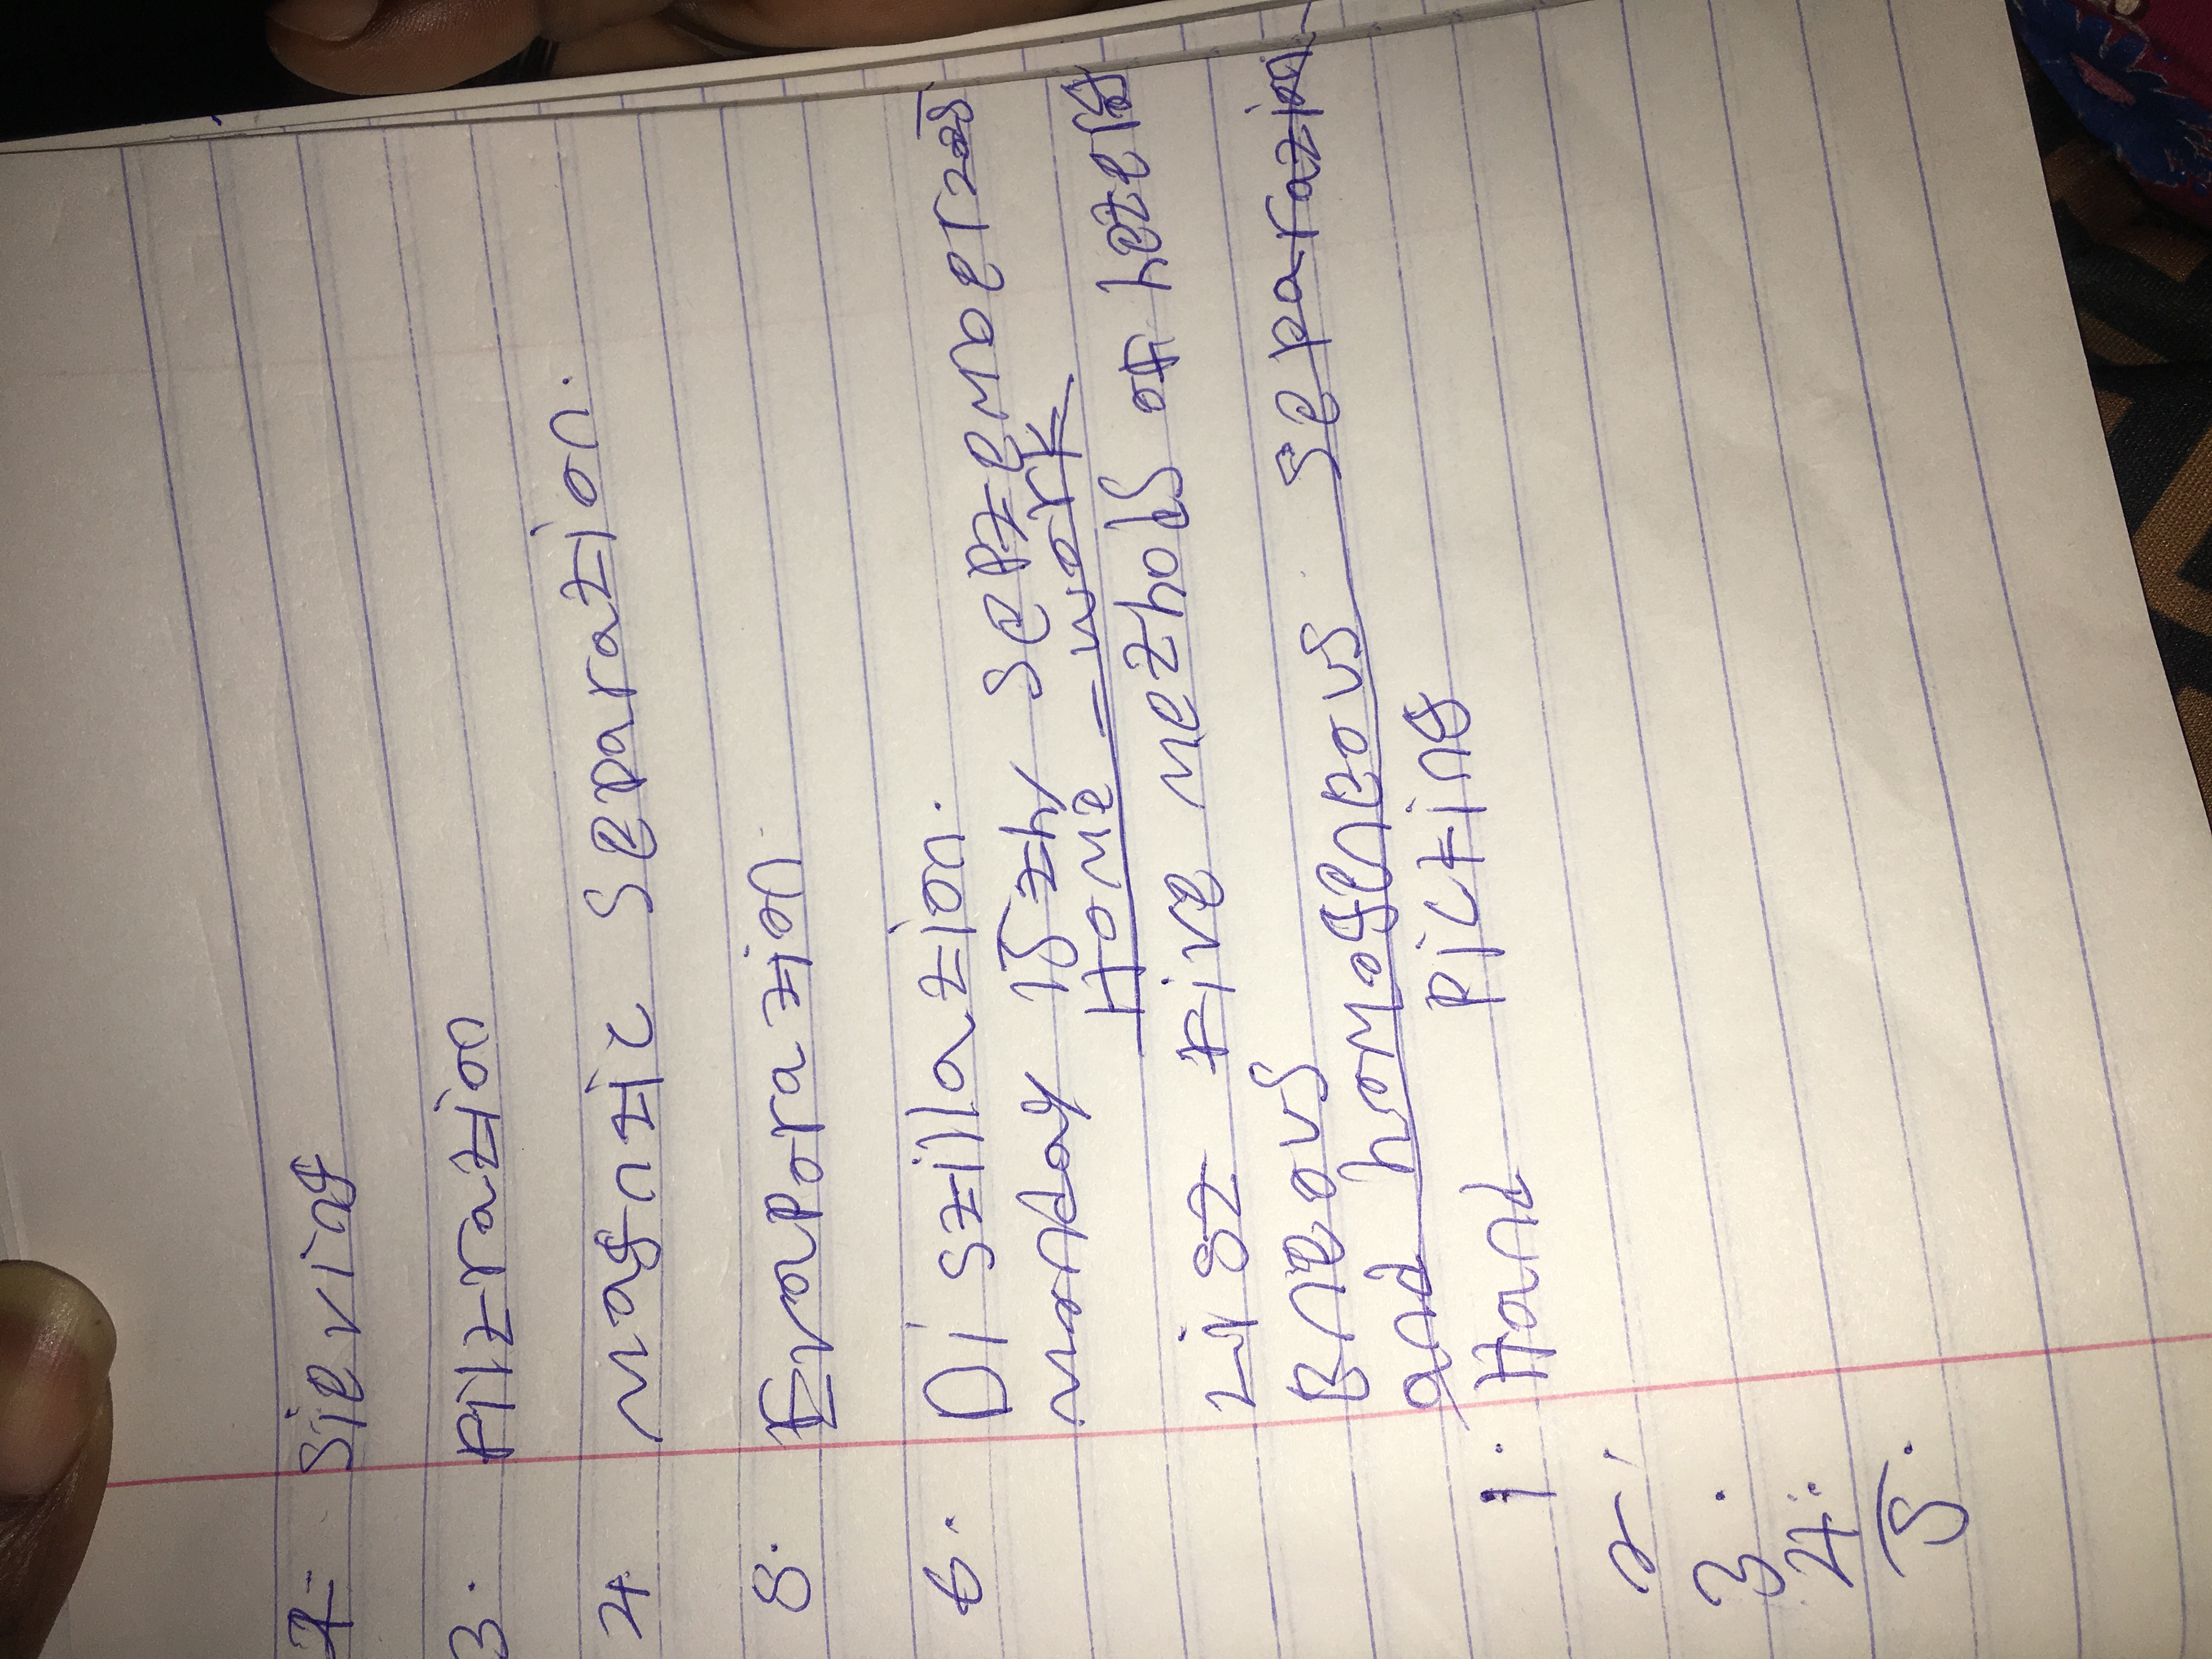 2- Sieving
3. Filtration
4 magntic Separation.
5. Evaporation.
6. Distillation.
monday 15th September 2025
Home = work
List five methods of heterg
eneous separation
and homogeneous
1. Hand picking
2.
3.
4.
5.